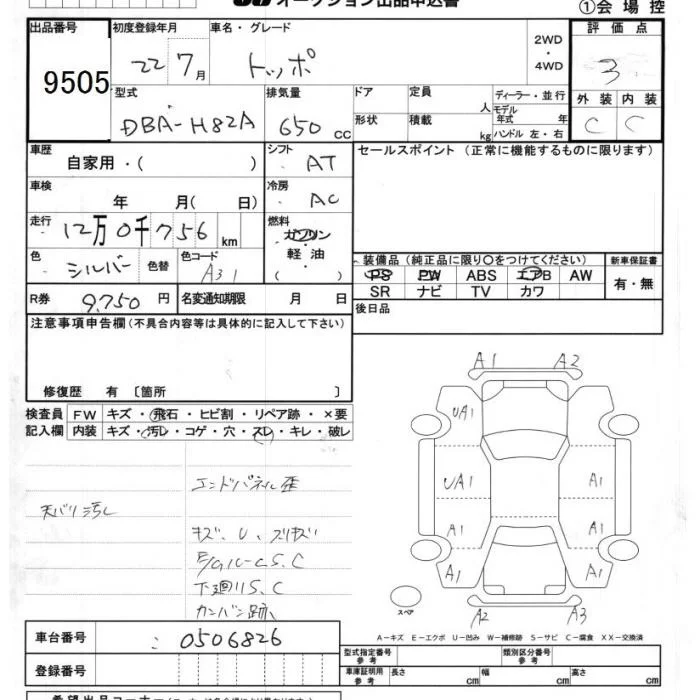 オークション出品申込書
①会場控
出品番号 初度登録年月 車名・グレード 評価点
9505 22年 7月 トッポ 2WD・4WD 3
型式 排気量 ドア 定員 人 ディーラー・並行 外装 内装
DBA-H82A 650cc 形状 積載 kg モデル年式 年 ハンドル 左・右 C C
車歴 自家用・( ) シフト AT セールスポイント (正常に機能するものに限ります)
車検 年 月( 日) 冷房 AC
走行 12万0千756km 燃料 ガソリン
軽油
( )
色 シルバー 色替 色コード A31 装備品 (純正品に限り○をつけてください) 新車保証書
PS PW ABS エアB AW 有・無
R券 9,750円 名変通知期限 月 日 SR ナビ TV カワ
後日品
注意事項申告欄(不具合内容等は具体的に記入して下さい)
修復歴 有 〔箇所 〕
検査員 FW キズ・飛石・ヒビ割・リペア跡・×要
記入欄 内装 キズ・汚レ・コゲ・穴・スレ・キレ・破レ
エンドパネル歪
天バリ汚レ
キズ、U、スリキズ
下廻りS、C
カンバン跡
A1 A2
UA1
UA1 A1
A1 A1
A1 A1
A2 A3
スペア
A-キズ E-エクボ U-凹み W-補修跡 S-サビ C-腐食 XX-交換済
車台番号 0506826
型式指定番号 参考 類別区分番号 参考
登録番号 車庫証明用 参考 長さ cm 幅 cm 高さ cm